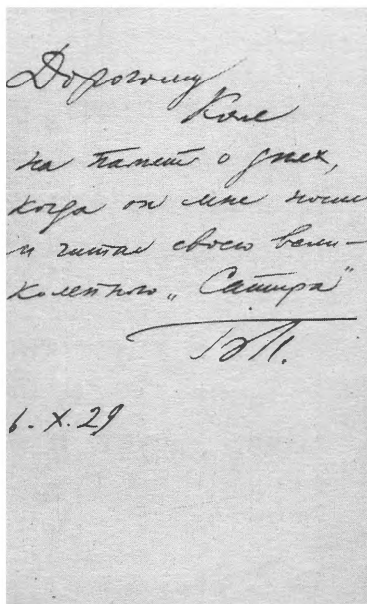 Дорогому
Коле
на память о днях,
когда он мне
и читал своего вели-
колепного „Сатира“
БП.
6.X.29